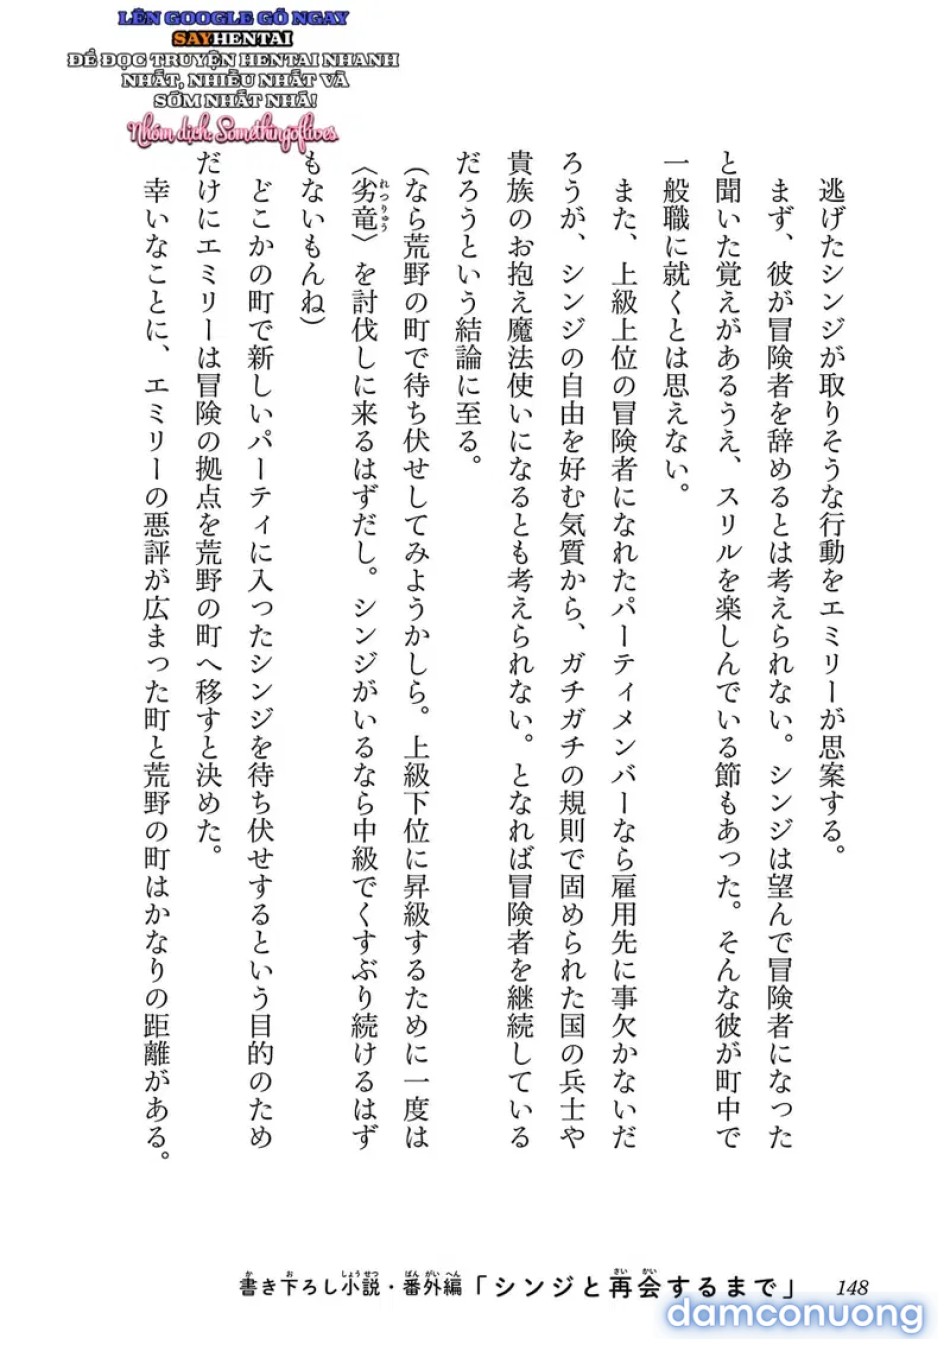 LÊN GOOGLE GÕ NGAY
SAYHENTAI
ĐỂ ĐỌC TRUYỆN HENTAI NHANH
NHẤT, NHIỀU NHẤT VÀ
SỚM NHẤT NHÁ!
Nhóm dịch: Somethingoflives
逃げたシンジが取りそうな行動をエミリーが思案する。
まず、彼が冒険者を辞めるとは考えられない。シンジは望んで冒険者になった
と聞いた覚えがあるうえ、スリルを楽しんでいる節もあった。そんな彼が町中で
一般職に就くとは思えない。
また、上級上位の冒険者になれたパーティメンバーなら雇用先に事欠かないだ
ろうが、シンジの自由を好む気質から、ガチガチの規則で固められた国の兵士や
貴族のお抱え魔法使いになるとも考えられない。となれば冒険者を継続している
だろうという結論に至る。
(なら荒野の町で待ち伏せしてみようかしら。上級下位に昇級するために一度は
〈劣竜〉を討伐しに来るはずだし。シンジがいるなら中級でくすぶり続けるはず
れつりゅう
もないもんね)
どこかの町で新しいパーティに入ったシンジを待ち伏せするという目的のため
だけにエミリーは冒険の拠点を荒野の町へ移すと決めた。
幸いなことに、エミリーの悪評が広まった町と荒野の町はかなりの距離がある。
か お しょうせつ ばんがいへん さいかい
書き下ろし小説・番外編「シンジと再会するまで」 148
damconuong